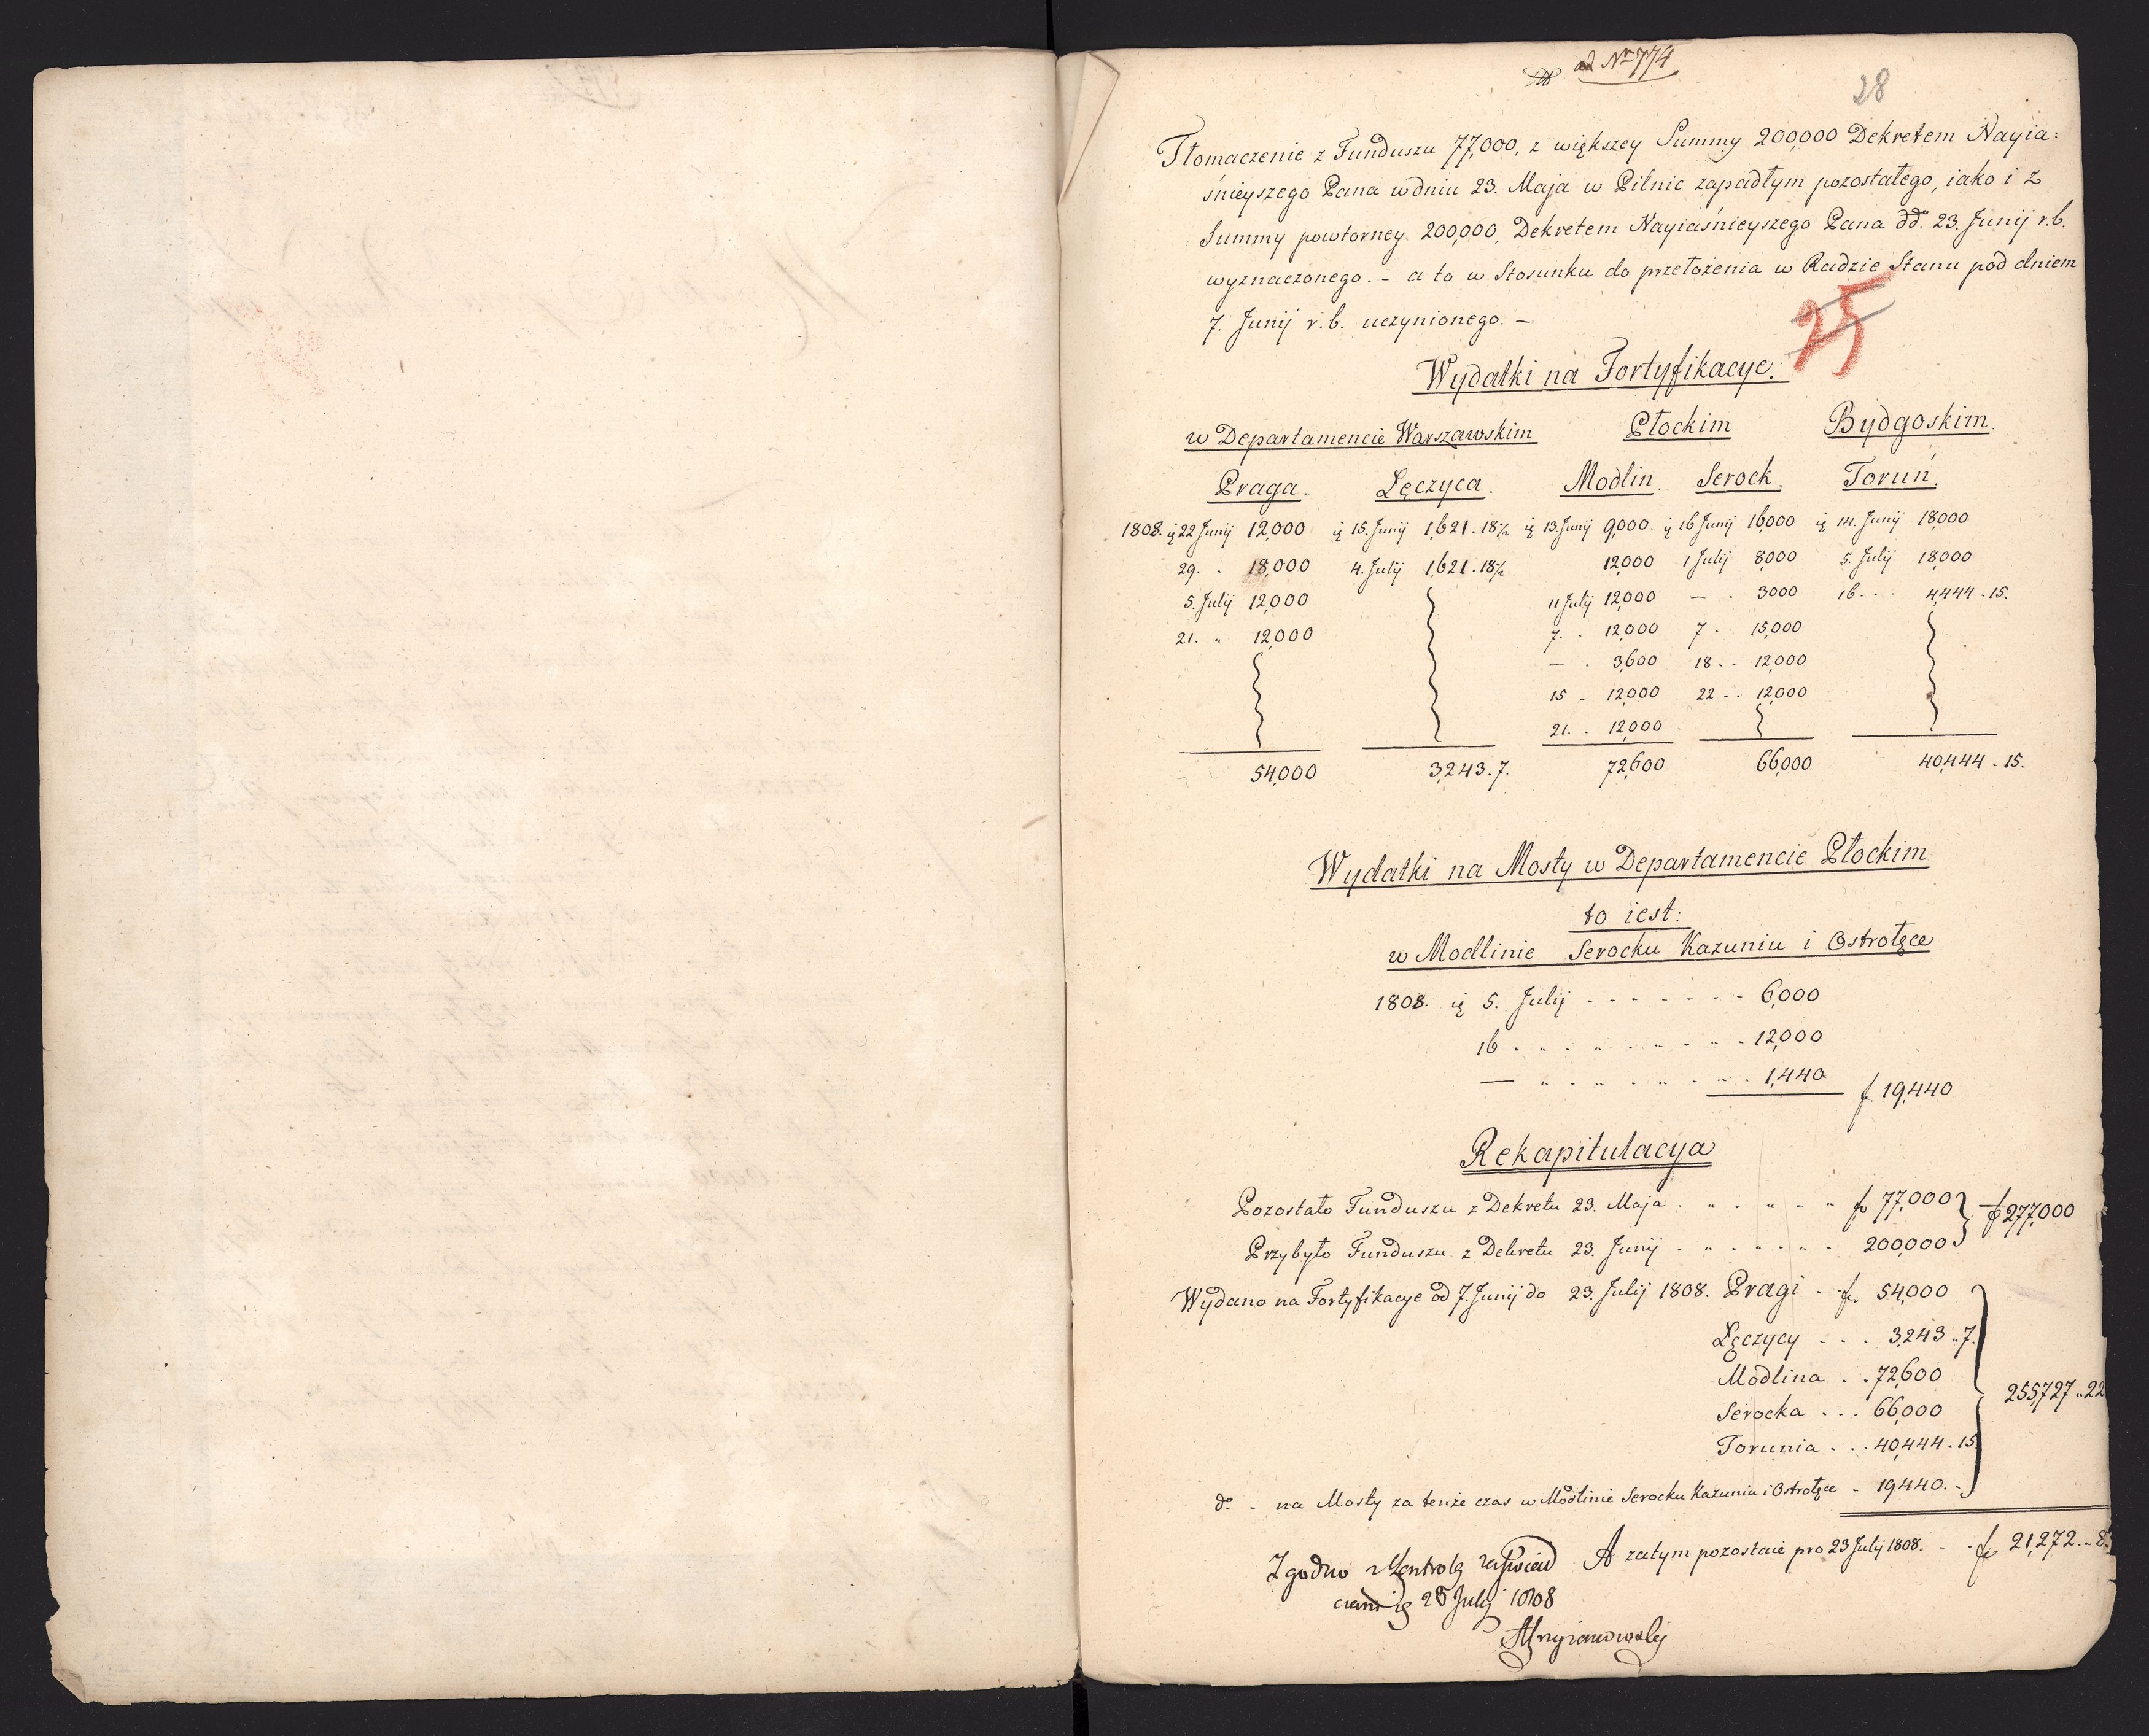 ad Nr 774
28
Tłomaczenie z Funduszu 77,000, z większey Summy 200,000 Dekretem Nayia:
śnieyszego Pana w dniu 23. Maja w Pilnic zapadłym pozostałego, iako i z
Summy powtorney 200,000, Dekretem Nayiaśnieyszego Pana dd° 23. Junij r.b.
wyznaczonego. – a to w Stosunku do przełożenia w Radzie Stanu pod dniem
7. Junij r.b. uczynionego. –
25
Wydatki na Fortyfikacye.
w Departamencie Warszawskim Płockim Bydgoskim.
Praga. Łęczyca. Modlin. Serock. Toruń.
1808. ię 22 Junij 12,000 ię 15. Junij 1,621.18½ ię 13. Junij 9,000. ię 16 Junij 16,000 ię 14. Junij 18,000
29. . 18,000 4. Julij 1,621.18½ 12,000 1 Julij 8,000 5. Julij 18,000
5. Julij 12,000 11 Julij 12,000 — . 3000 16. . . 4,444.15.
21. " 12,000 7. . 12,000 7 . . 15,000
— . 3,600 18 . . 12,000
15 . 12,000 22 . . 12,000
21. . 12,000
54,000 3,243.7. 72,600 66,000 40,444.15.
Wydatki na Mosty w Departamencie Płockim
to iest:
w Modlinie Serocku Kazuniu i Ostrołęce
1808. ię 5. Julij - - - - - - - 6,000
16 . . . . . . . . 12,000
— " " " " " " . 1,440
f. 19,440
Rekapitulacya
Pozostało Funduszu z Dekretu 23. Maja . " . " . " f 77,000 f 277,000
Przybyło Funduszu z Dekretu 23. Junij . " . . . . 200,000
Wydano na Fortyfikacye od 7. Junij do 23. Julij 1808. Pragi . f. 54,000
Łęczycy . . . 3,243.7.
Modlina . . 72,600
255,727.22
Serocka . . . 66,000
Torunia . . . 40,444.15
d° - na Mosty za tenże czas w Modlinie Serocku Kazuniu i Ostrołęce - 19,440.
A zatym pozostaie pro 23 Julij 1808. - - f 21,272.8.
Zgodno z Kontrolą zaświad
czam ię 28 Julij 1808